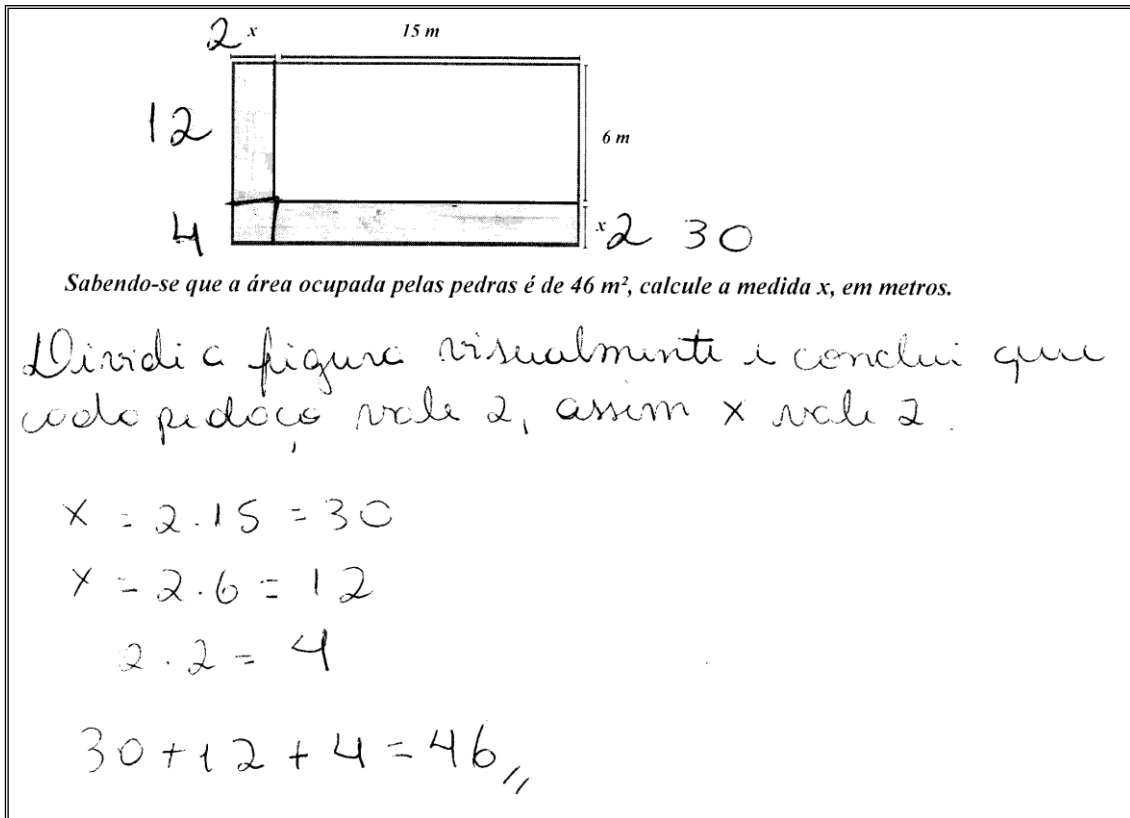 2 x 15 m
12
6 m
4
x 2 30
Sabendo-se que a área ocupada pelas pedras é de 46 m², calcule a medida x, em metros.
Dividi a figura visualmente e conclui que
cada pedaço vale 2, assim x vale 2.
x = 2.15 = 30
x = 2.6 = 12
2.2 = 4
30 + 12 + 4 = 46,,